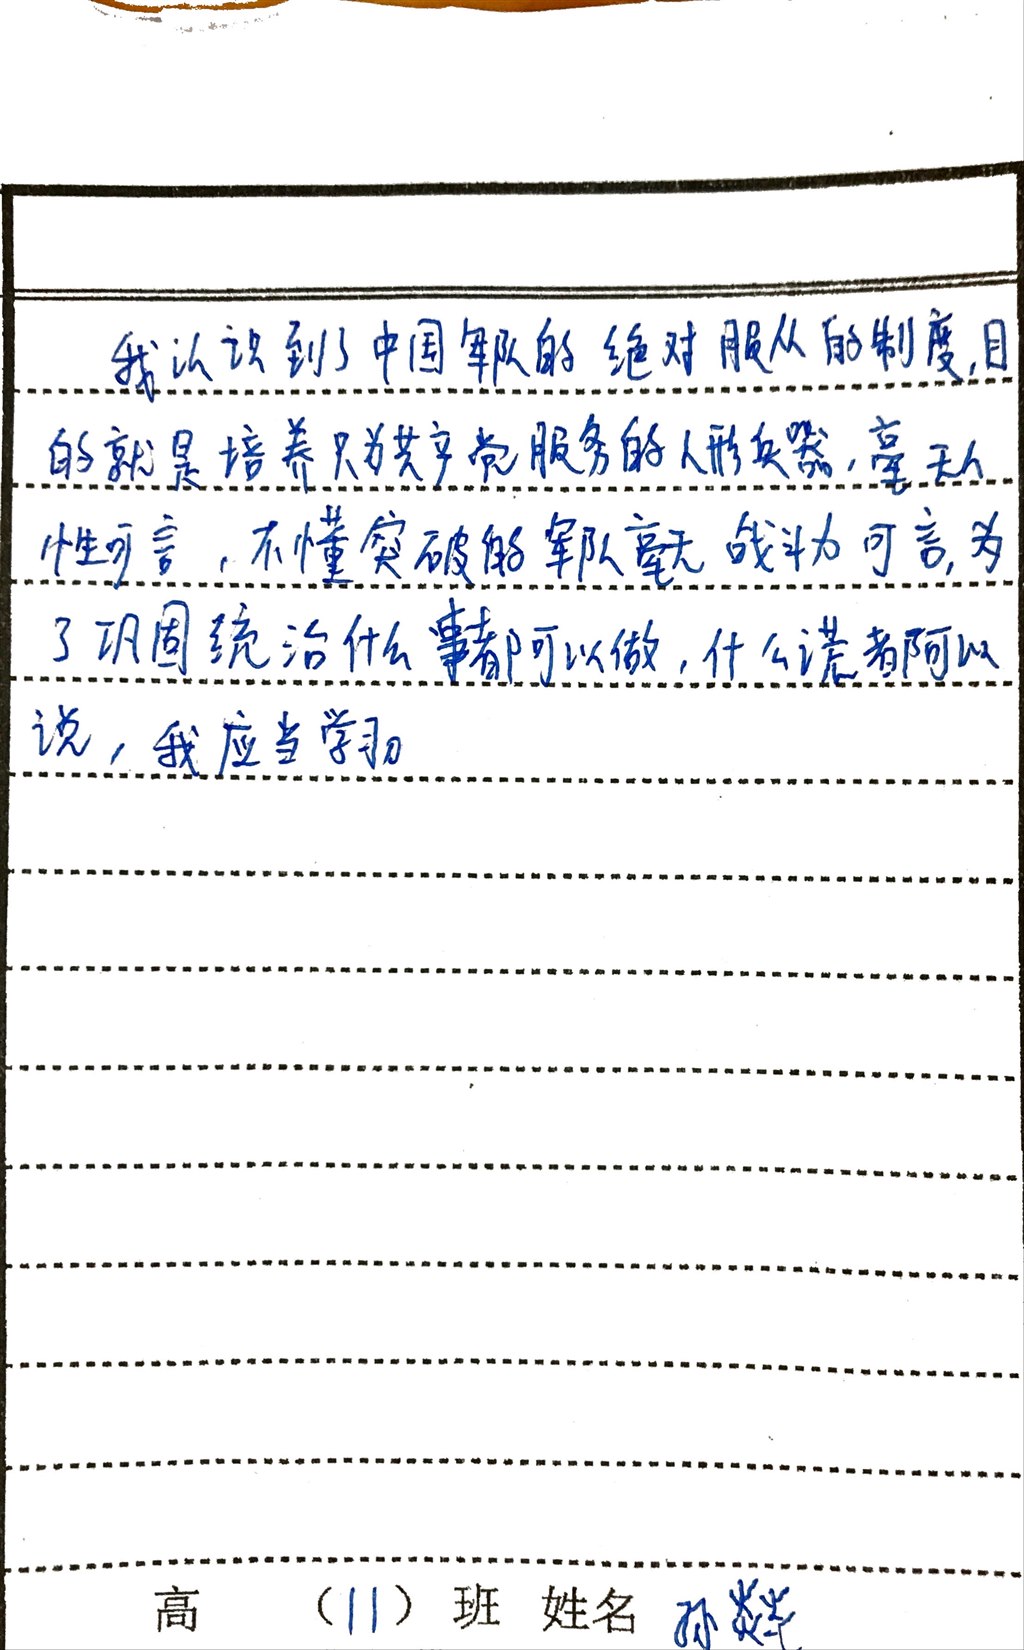 我认识到了中国军队的绝对服从的制度,目
的就是培养只为共产党服务的人形兵器,毫无人
性可言,不懂突破的军队毫无战斗力可言,为
了巩固统治什么事都可以做,什么谎都可以
说,我应当学习
高 (11)班 姓名 孙